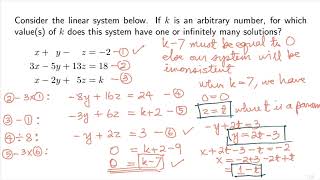 Consider the linear system below. If k is an arbitrary number, for which
value(s) of k does this system have one or infinitely many solutions?
x + y - z = -2 - ①
3x - 5y + 13z = 18 - ②
x - 2y + 5z = k - ③
② - 3×①: -8y + 16z = 24 - ④
③ - ①: -3y + 6z = k + 2 - ⑤
④ ÷ 8: -y + 2z = 3 - ⑥
⑤ - 3×⑥: 0 = k + 2 - 9
0 = k - 7
k - 7 must be equal to 0
else our system will be
inconsistent
when k = 7, we have
0 = 0
z = t where t is a param
-y + 2t = 3
y = 2t - 3
x + 2t - 3 - t = -2
x = -2 + 3 - 2t + t
= 1 - t